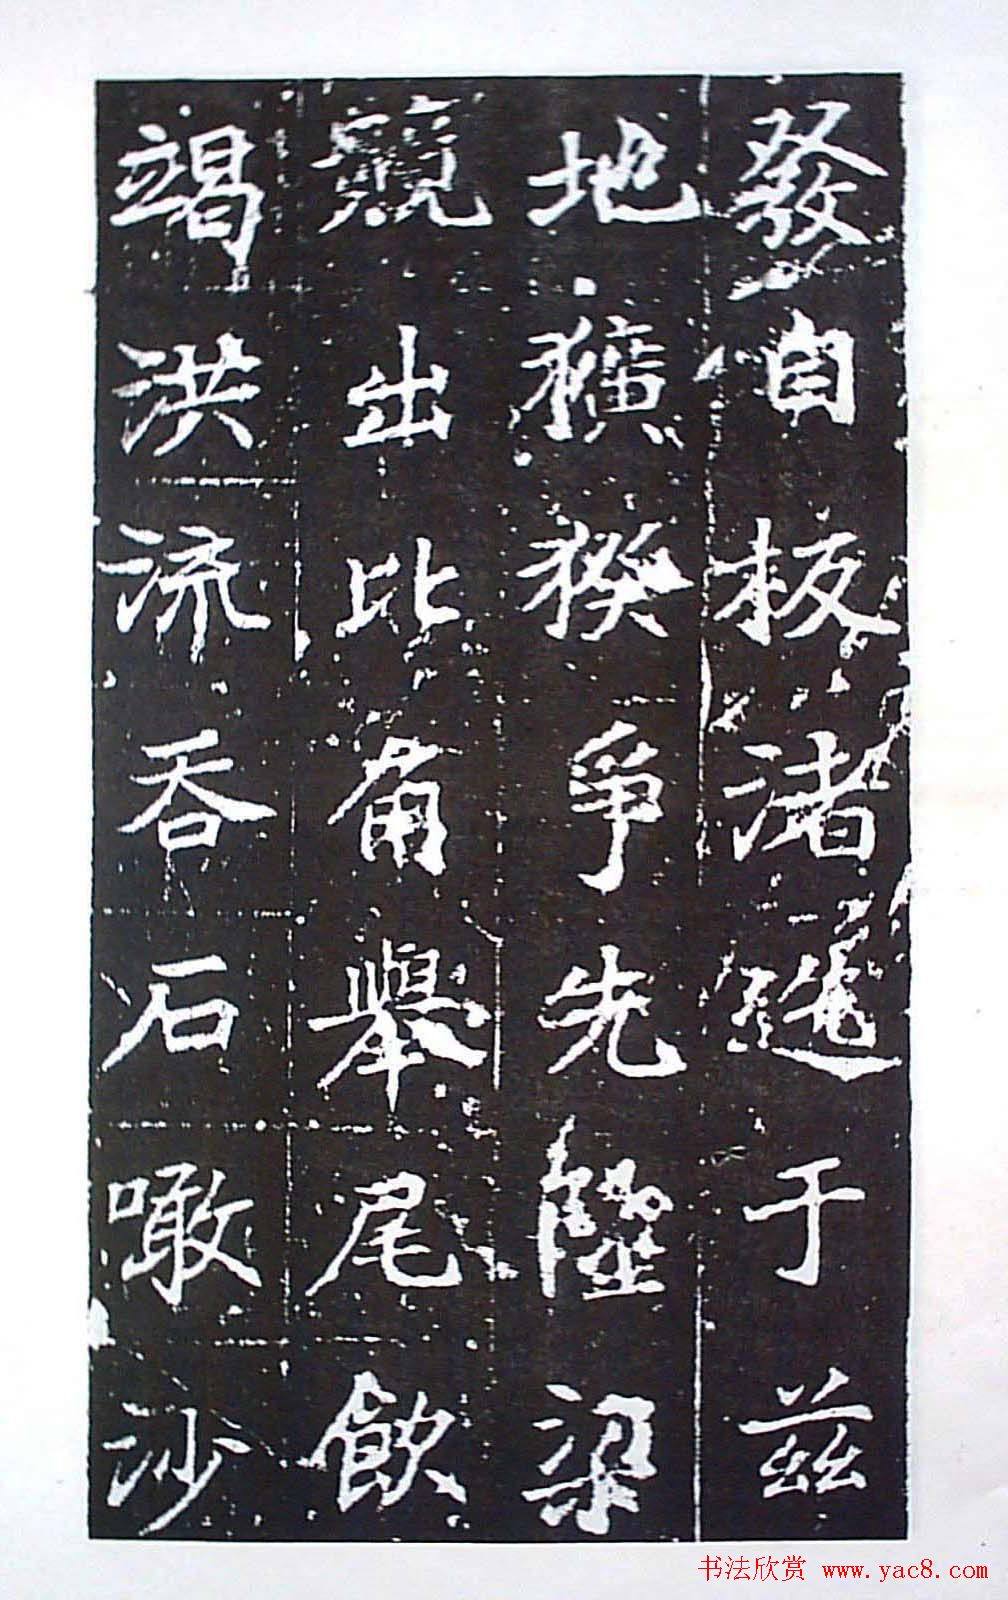 發自板渚于茲
地獷猤爭先陸梁
競出比角舉尾飲
竭洪流吞石噉沙
书法欣赏 www.yac8.com